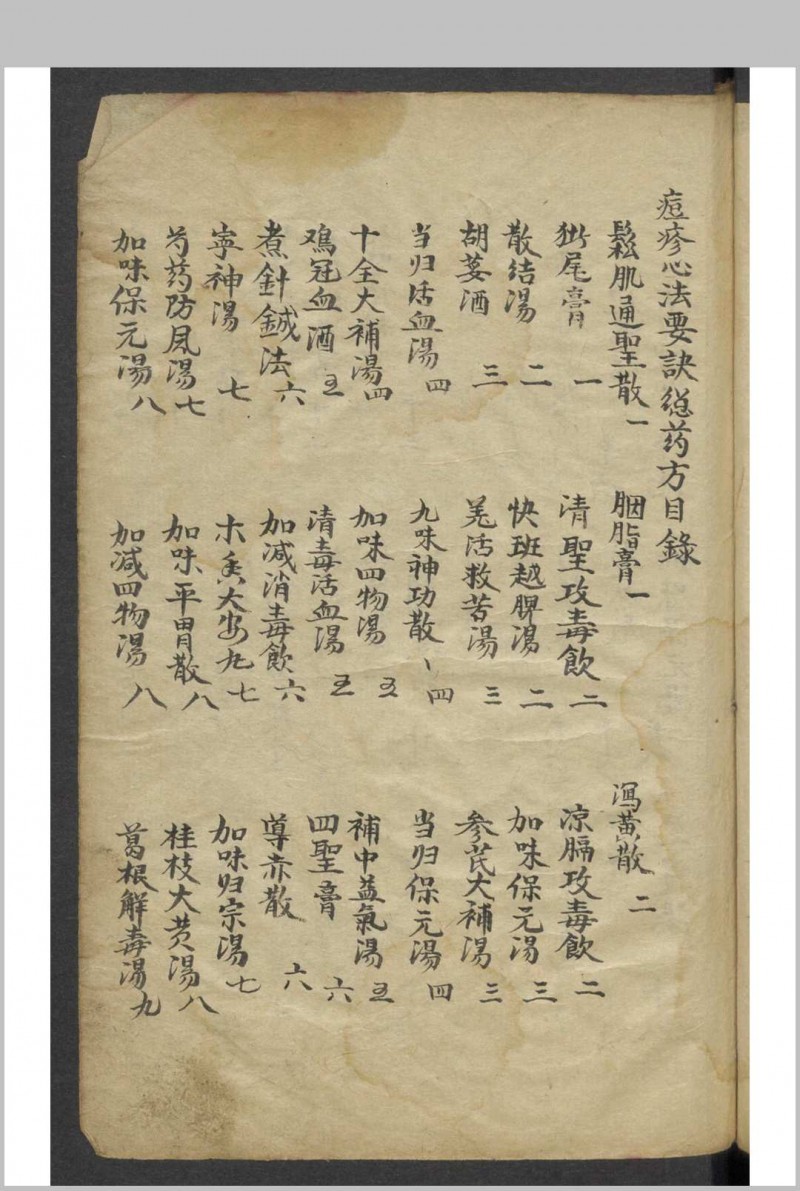 痘疹心法要訣總药方目錄
鬆肌通聖散一 胭脂膏一 瀉黄散二
猕尾膏一 清聖攻毒飲二 凉膈攻毒飲二
散结湯二 快班越脾湯二 加味保元湯三
胡荽酒三 羌活救苦湯三 参芪大補湯三
当归活血湯四 九味神功散、四 当归保元湯四
十全大補湯四 加味四物湯五 補中益氣湯五
鳮冠血酒五 清毒活血湯五 四聖膏六
煮針鍼法六 加减消毒飲六 導赤散六
寧神湯七 木香大安丸七 加味归宗湯七
芍药防風湯七 加味平胃散八 桂枝大黄湯八
加味保元湯八 加减四物湯八 葛根解毒湯九